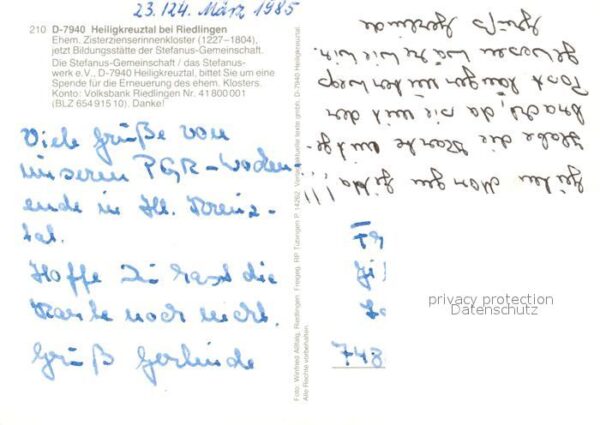 23./24. März 1985
210 D-7940 Heiligkreuztal bei Riedlingen
Ehem. Zisterzienserinnenkloster (1227–1804),
jetzt Bildungsstätte der Stefanus-Gemeinschaft.
Die Stefanus-Gemeinschaft / das Stefanus-
werk e.V., D-7940 Heiligkreuztal, bittet Sie um eine
Spende für die Erneuerung des ehem. Klosters.
Konto: Volksbank Riedlingen Nr. 41 800 001
(BLZ 654 915 10). Danke!
Viele Grüße von
unserem PGR-Wochen-
ende in Hl. Kreuz-
tal.
Hoffe Du hast die
Karte noch nicht.
Gruß Gerlinde
Foto: Winfried Aßfalg, Riedlingen. Freigeg. RP Tübingen P 14262. Verlag aktueller texte gmbh, D-7940 Heiligkreuztal
Alle Rechte vorbehalten.
Guten Morgen Gitta!!!
Habe die Karte mitge-
bracht, da sie mit der
Post länger unterwegs
gewesen wäre wie wir.
Gruß Gerlinde
743
privacy protection
Datenschutz